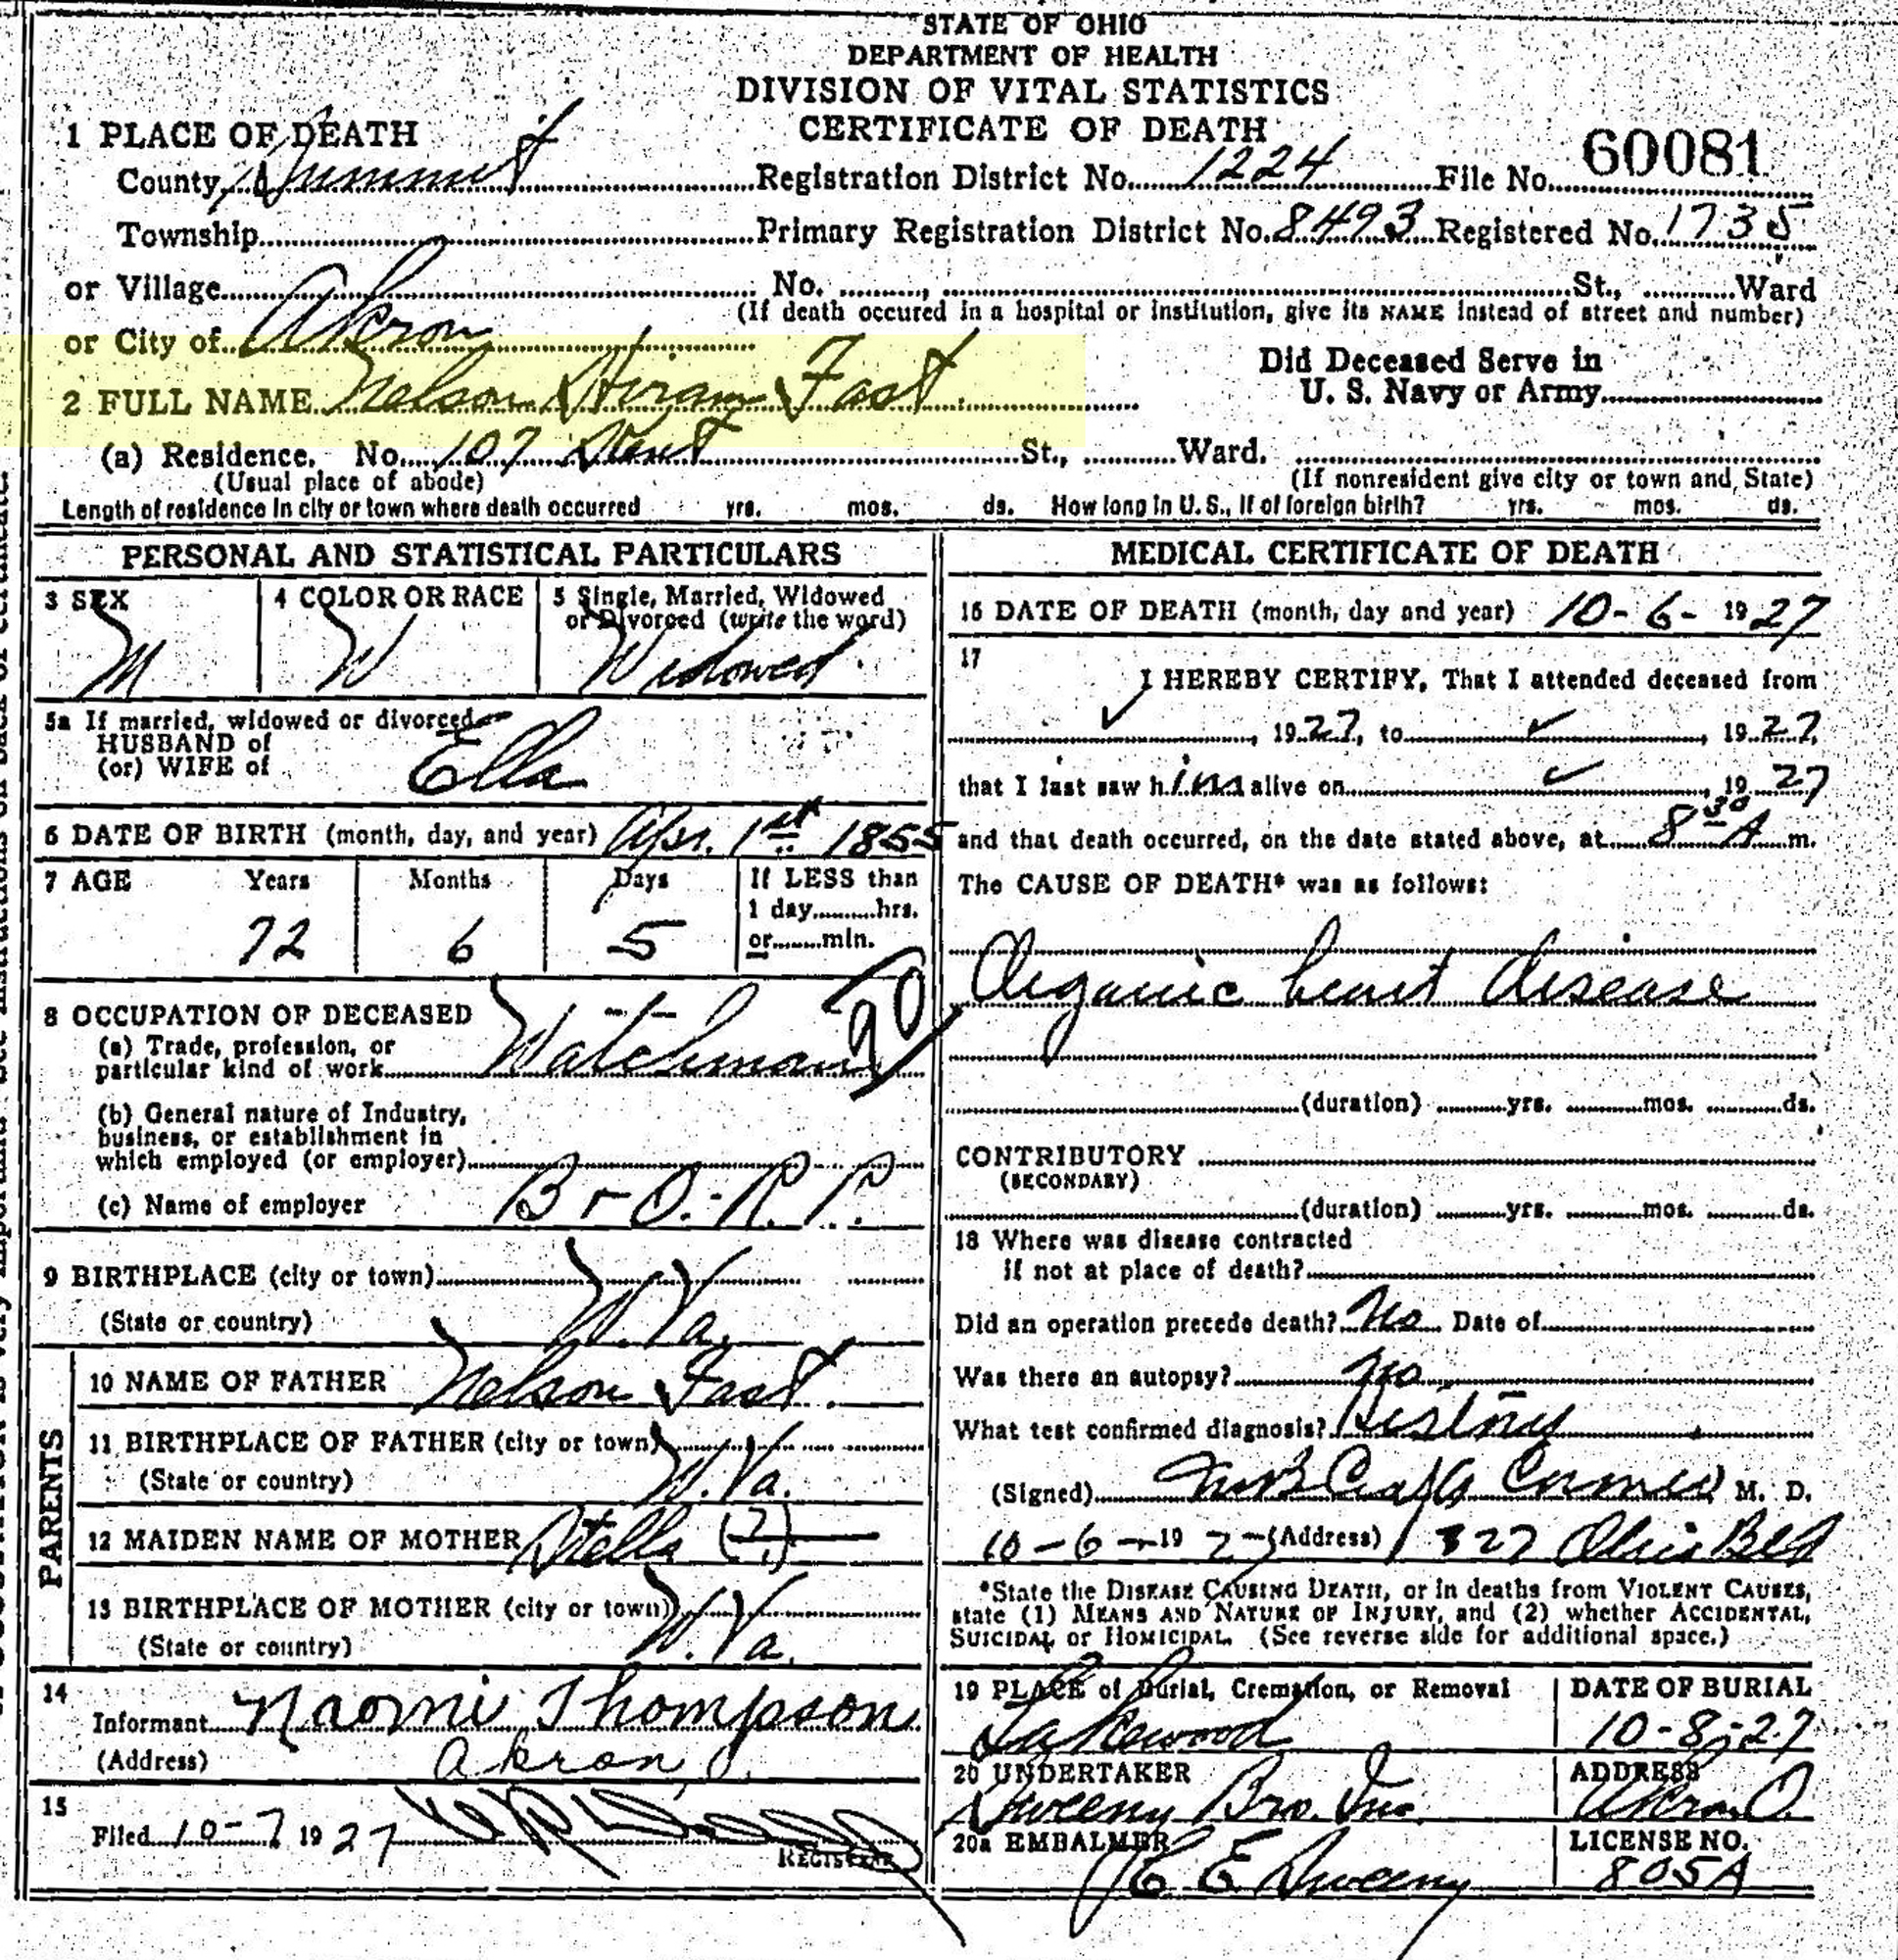 STATE OF OHIO
DEPARTMENT OF HEALTH
DIVISION OF VITAL STATISTICS
CERTIFICATE OF DEATH
1 PLACE OF DEATH
County Summit Registration District No. 1224 File No. 60081
Township Primary Registration District No. 8493 Registered No. 1735
or Village No. , St., Ward
(If death occured in a hospital or institution, give its NAME instead of street and number)
or City of Akron
Did Deceased Serve in
U. S. Navy or Army
2 FULL NAME Nelson Hiram Fast
(a) Residence. No. 107 Kent St., Ward.
(Usual place of abode) (If nonresident give city or town and State)
Length of residence in city or town where death occurred yrs. mos. ds. How long in U. S., if of foreign birth? yrs. mos. ds.
PERSONAL AND STATISTICAL PARTICULARS
3 SEX 4 COLOR OR RACE 5 Single, Married, Widowed
or Divorced (write the word)
M W Widowed
5a If married, widowed or divorced
HUSBAND of
(or) WIFE of Ella
6 DATE OF BIRTH (month, day, and year) Apr. 1st 1855
7 AGE Years Months Days If LESS than
1 day hrs.
or min.
72 6 5
8 OCCUPATION OF DECEASED
(a) Trade, profession, or
particular kind of work Watchman
(b) General nature of Industry,
business, or establishment in
which employed (or employer)
(c) Name of employer B + O. R. R.
9 BIRTHPLACE (city or town)
(State or country) W. Va.
PARENTS
10 NAME OF FATHER Nelson Fast.
11 BIRTHPLACE OF FATHER (city or town)
(State or country) W. Va.
12 MAIDEN NAME OF MOTHER Stella (?)
13 BIRTHPLACE OF MOTHER (city or town)
(State or country) W. Va.
14
Informant Naomi Thompson
(Address) Akron, O.
15
Filed 10-7 1927
REGISTRAR
MEDICAL CERTIFICATE OF DEATH
16 DATE OF DEATH (month, day and year) 10-6- 1927
17
I HEREBY CERTIFY, That I attended deceased from
✓, 1927, to ✓, 1927,
that I last saw him alive on ✓, 1927
and that death occurred, on the date stated above, at 8 30 A m.
The CAUSE OF DEATH* was as follows:
Organic heart disease
(duration) yrs. mos. ds.
CONTRIBUTORY
(SECONDARY)
(duration) yrs. mos. ds.
18 Where was disease contracted
if not at place of death?
Did an operation precede death? No Date of
Was there an autopsy? No
What test confirmed diagnosis? History
(Signed) M. D.
10-6-1927 (Address) 327 Ohio Bld
*State the DISEASE CAUSING DEATH, or in deaths from VIOLENT CAUSES,
state (1) MEANS AND NATURE OF INJURY, and (2) whether ACCIDENTAL,
SUICIDAL or HOMICIDAL. (See reverse side for additional space.)
19 PLACE of Burial, Cremation, or Removal DATE OF BURIAL
Lakewood 10-8-27
20 UNDERTAKER ADDRESS
Sweeny Bro. Inc. Akron O.
20a EMBALMER LICENSE NO.
C E Sweeny 805A